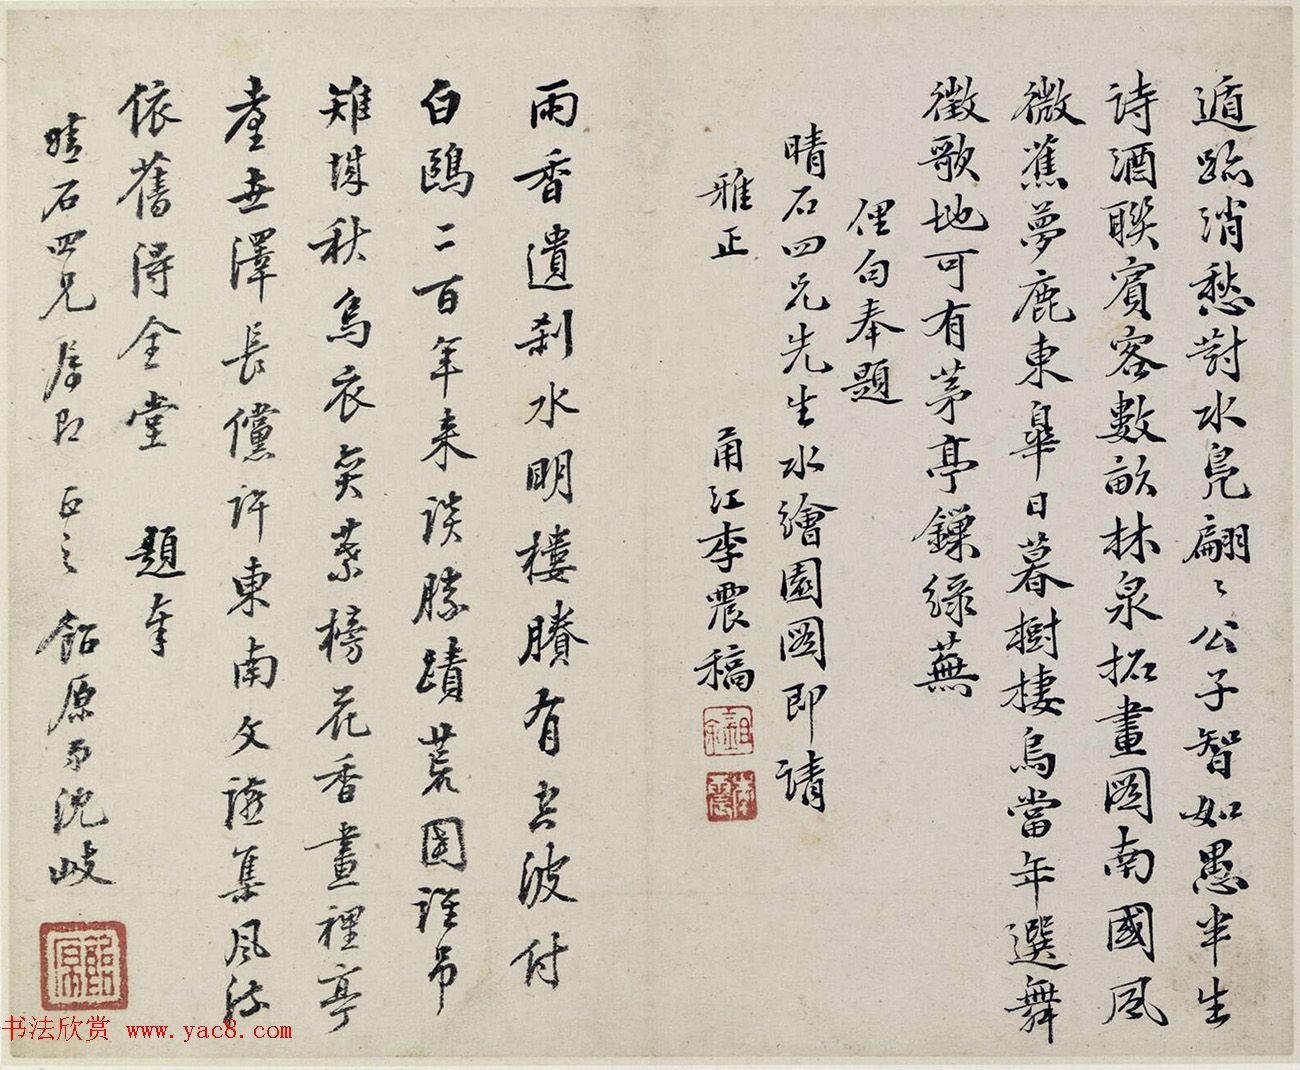 遁跡消愁對水鳧翩〻公子智如愚半生
詩酒聯賓客數畝林泉拓畫圖南國風
微蕉夢鹿東皋日暮樹棲烏當年選舞
徵歌地可有茅亭鏁綠蕪
俚句奉題
晴石四兄先生水繪園圖即請
雅正
甬江李震稿
李震
雨香遺刹水明樓賸有空波付
白鷗二百年来談勝蹟荒園誰弔
雉城秋烏衣奕葉榜花香畫裡亭
臺世澤長儻許東南文讌集風流
依舊得全堂 題奉
晴石四兄屬即正之 飴原弟沈岐
飴原
书法欣赏 www.yac8.com